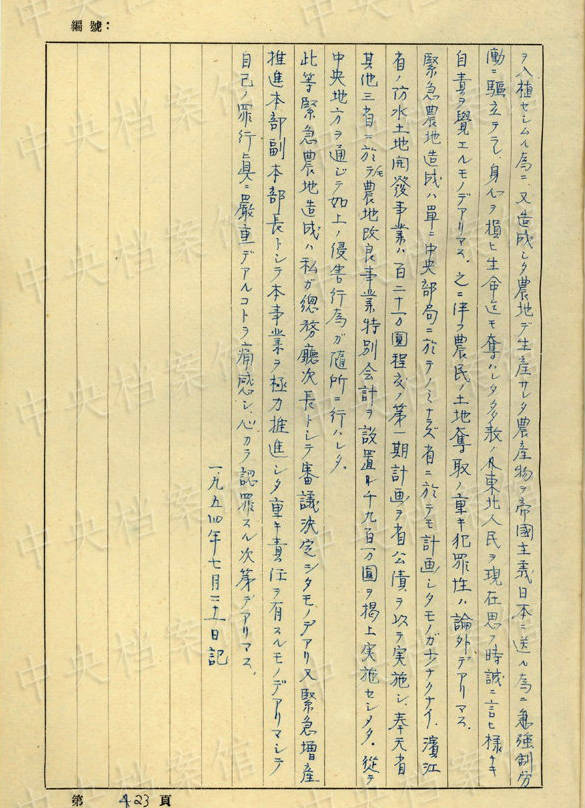 編號：
ヲ入植セシムル為ニ又造成シタ農地デ生産サレタ農産物ヲ帝國主義日本ニ送ル為ニ強制労
働ニ驅立テラレ身心ヲ損ヒ生命迄モ奪ハレタ多数ノ中國東北人民ヲ現在思フ時誠ニ言ヒ様ナキ
自責ヲ覺エルモノデアリマス。之ニ伴フ農民ノ土地奪取ノ重キ犯罪性ハ論外デアリマス。
緊急農地造成ハ單ニ中央部局ニ於テノミナラズ省ニ於テモ計画シタモノガ少ナクナイ。濱江
省ノ防水土地開發事業ハ百二十万圓程度ノ第一期計画ヲ省公債ヲ以テ実施シ、奉天省
其他三省ニ於テモ農地改良事業特別会計ヲ設置シ千九百万圓ヲ掲上実施セシメタ。從テ
中央地方ヲ通ジテ如上ノ侵害行為ガ随所ニ行ハレタ。
此等緊急農地造成ハ私ガ總務廳次長トシテ審議決定シタモノデアリ又緊急増産
推進本部副本部長トシテ本事業ヲ極力推進シタ重キ責任ヲ有スルモノデアリマシテ
自己ノ罪行眞ニ嚴重デアルコトヲ痛感シ、心カラ認罪スル次第デアリマス。
一九五四年七月二十日記
第 423 頁
中央档案馆